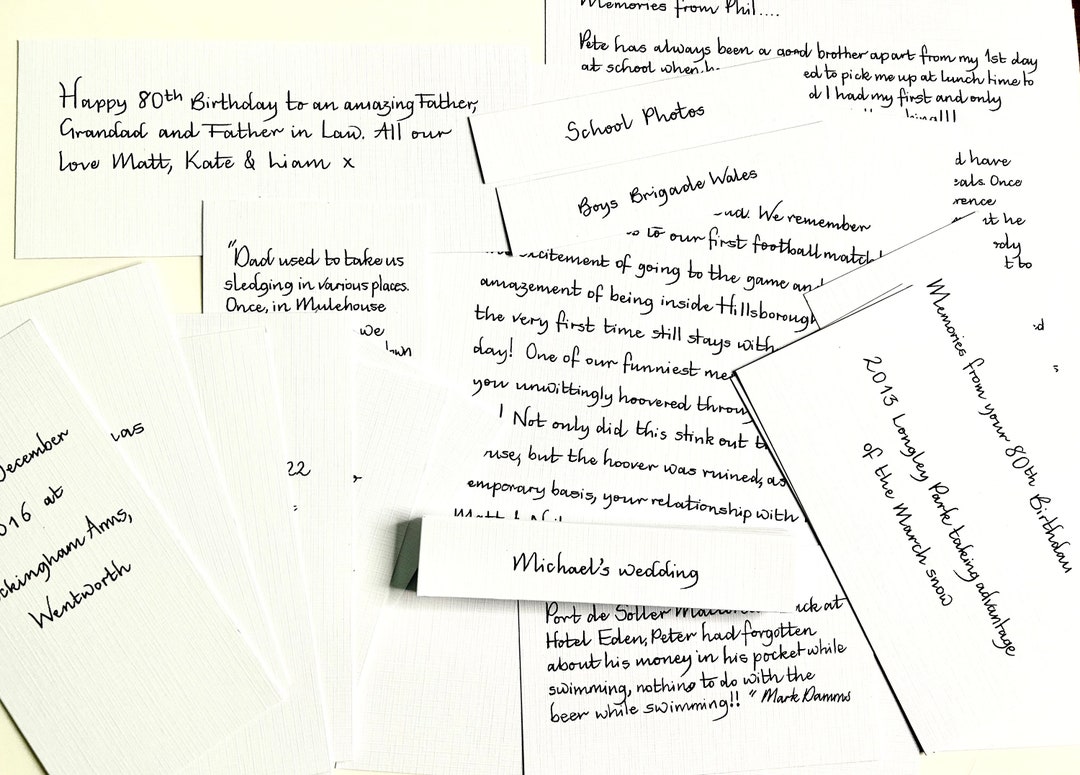 Memories from Phil....
Pete has always been a good brother apart from my 1st day
at school when
ed to pick me up at lunch time to
d I had my first and only
Happy 80th Birthday to an amazing Father,
Grandad and Father in Law. All our
love Matt, Kate & Liam x
School Photos
Boys Brigade Wales
d have
Once
We remember
to our first football match
excitement of going to the game an
amazement of being inside Hillsborough
the very first time still stays with
day! One of our funniest me
you unwittingly hoovered throu
! Not only did this stink out t
use, but the hoover was ruined, as
emporary basis, your relationship with
"Dad used to take us
sledging in various places.
Once, in Mulehouse
we
December
016 at
ckingham Arms,
Wentworth
was
22
Michael's wedding
Port de Soller
ck at
Hotel Eden, Peter had forgotten
about his money in his pocket while
swimming, nothing to do with the
beer while swimming!! " Mark Damms
Memories from your 80th Birthday
2013 Longley Park taking advantage
of the March snow